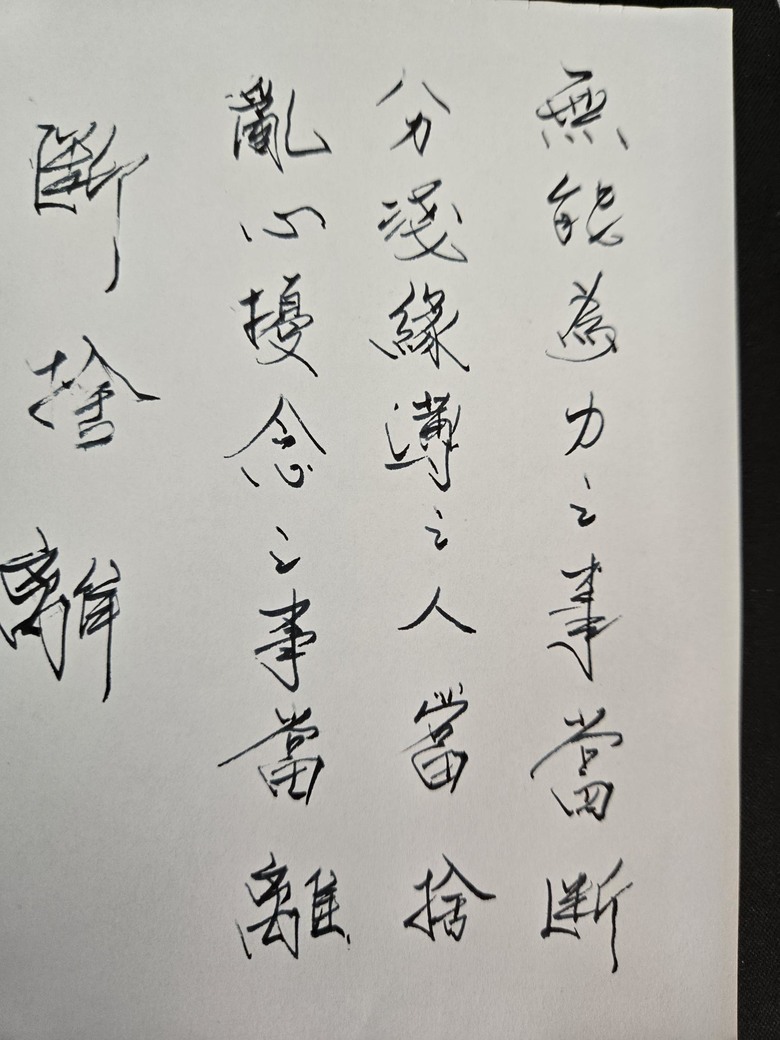 無能為力之事當斷
分淺緣薄之人當捨
亂心擾念之事當離
斷捨離